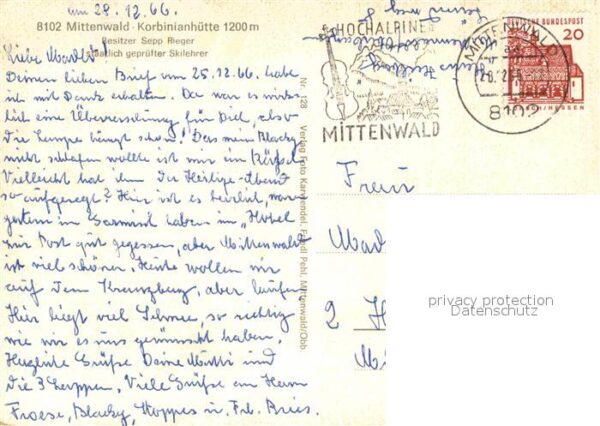 am 28.12.66.
8102 Mittenwald · Korbinianhütte 1200 m
Besitzer Sepp Rieger
staatlich geprüfter Skilehrer
Liebe
Deinen lieben Brief vom 25.12.66. habe
ich mit Dank erhalten. Da war es wirk-
lich eine Überraschung für Dich, also
die Lampe hängt schon! Das mein Blacky
nicht schlafen wollte ist mir ein Rätsel
Vielleicht hat ihn der Heilige-Abend
so aufgeregt? Hier ist es herrlich, war
gestern in Garmisch haben im "Hotel
zur Post gut gegessen, aber Mittenwald
ist viel schöner. Heute wollen wir
auf den Kranzberg, aber laufen
Hier liegt viel Schnee, so richtig
wie wir es uns gewünscht haben.
Herzliche Grüße Deine Mutti und
die 3 Viele Grüße an Herrn
Froese, Blacky, u. Frl. Bries.
Nr. 328 Verlag Foto Karwendel, Friedl Pehl, Mittenwald/Obb.
HOCHALPINER
MITTENWALD
MITTENWALD
8102
DEUTSCHE BUNDESPOST
20
HESSEN
Frau
2 H
privacy protection
Datenschutz